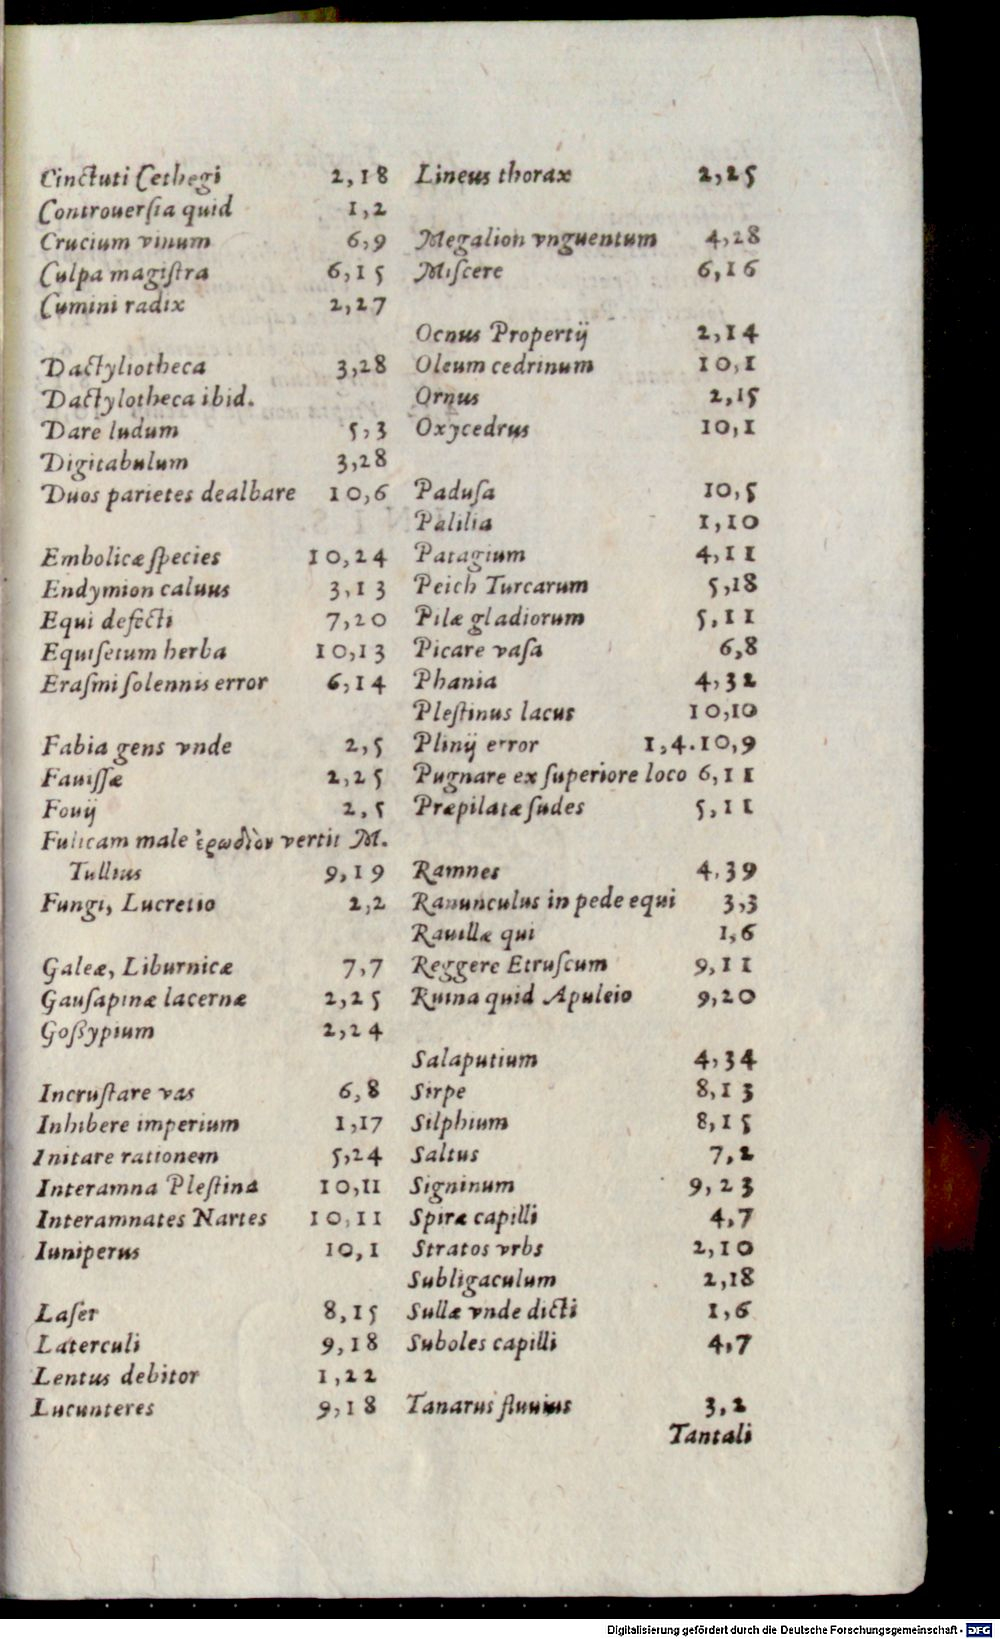 Cinctuti Cethegi 2,18
Controuersia quid 1,2
Crucium vinum 6,9
Culpa magistra 6,15
Cumini radix 2,27
Dactyliotheca 3,28
Dactylotheca ibid.
Dare ludum 5,3
Digitabulum 3,28
Duos parietes dealbare 10,6
Embolicæ species 10,24
Endymion caluus 3,13
Equi defecti 7,20
Equisetum herba 10,13
Erasmi solennis error 6,14
Fabia gens vnde 2,5
Fauissæ 2,25
Fouij 2,5
Fulicam male ἐρωδιὸν vertit M.
Tullius 9,19
Fungi, Lucretio 2,2
Galeæ, Liburnicæ 7,7
Gausapinæ lacernæ 2,25
Goßypium 2,24
Incrustare vas 6,8
Inhibere imperium 1,17
Initare rationem 5,24
Interamna Plestina 10,11
Interamnates Nartes 10,11
Iuniperus 10,1
Laser 8,15
Laterculi 9,18
Lentus debitor 1,22
Lucunteres 9,18
Lineus thorax 2,25
Megalion vnguentum 4,28
Miscere 6,16
Ocnus Propertij 2,14
Oleum cedrinum 10,1
Ornus 2,15
Oxycedrus 10,1
Padusa 10,5
Palilia 1,10
Patagium 4,11
Peich Turcarum 5,18
Pilæ gladiorum 5,11
Picare vasa 6,8
Phania 4,32
Plestinus lacus 10,10
Plinij error 1,4.10,9
Pugnare ex superiore loco 6,11
Præpilatæ sudes 5,11
Ramnes 4,39
Ranunculus in pede equi 3,3
Rauillæ qui 1,6
Reggere Etruscum 9,11
Ruina quid Apuleio 9,20
Salaputium 4,34
Sirpe 8,13
Silphium 8,15
Saltus 7,2
Signinum 9,23
Spiræ capilli 4,7
Stratos vrbs 2,10
Subligaculum 2,18
Sullæ vnde dicti 1,6
Suboles capilli 4,7
Tanarus fluuius 3,2
Tantali
Digitalisierung gefördert durch die Deutsche Forschungsgemeinschaft - DFG